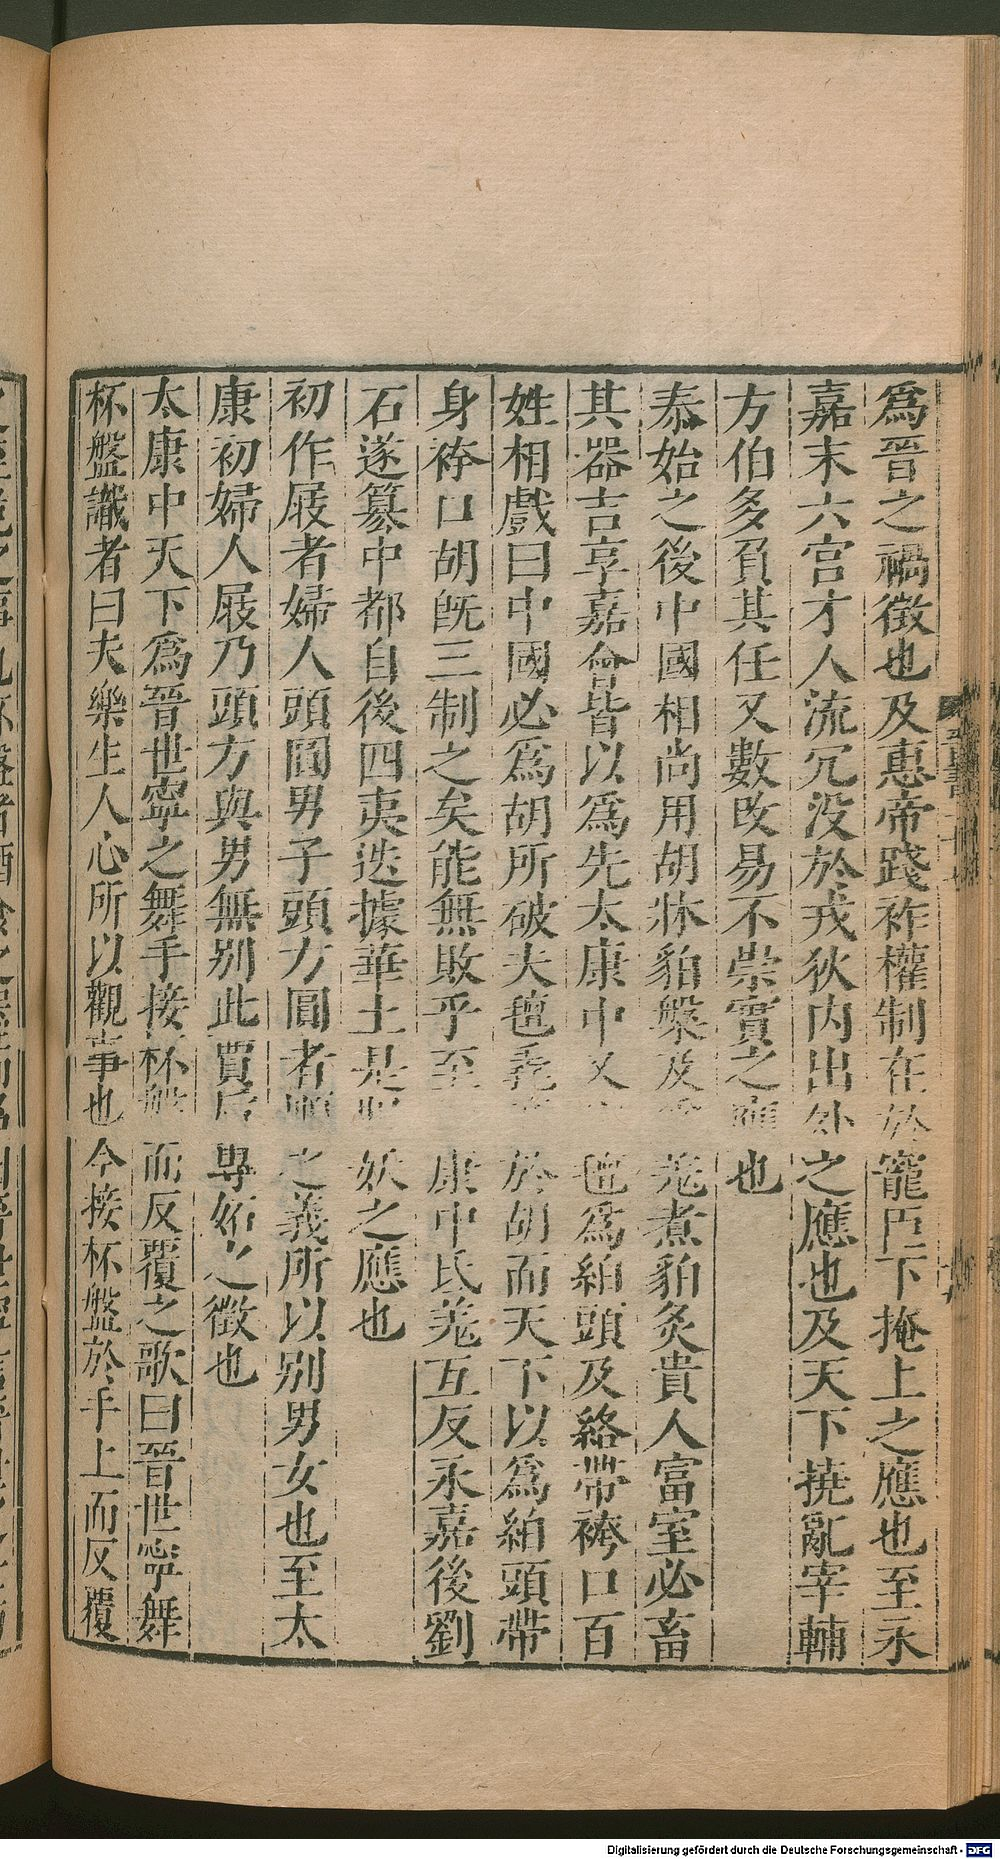 爲晉之禍徴也及惠帝踐祚權制在於寵臣下掩上之應也至永
嘉末六宮才人流冗没於戎狄内出外之應也及天下撓亂宰輔
方伯多負其任又數改易不崇實之應也
泰始之後中國相尚用胡牀貊槃及爲羌煮貊炙貴人富室必畜
其器吉享嘉會皆以爲先太康中又以氊爲絈頭及絡帶袴口百
姓相戲曰中國必爲胡所破夫氊毳産於胡而天下以爲絈頭帶
身袴口胡旣三制之矣能無敗乎至康中氐羌互反永嘉後劉
石遂篡中都自後四夷迭據華土是服妖之應也
初作屐者婦人頭圓男子頭方圓者順之義所以别男女也至太
康初婦人屐乃頭方與男無别此賈后專妬之徴也
太康中天下爲晉世寧之舞手接杯盤而反覆之歌曰晉世寧舞
杯盤識者曰夫樂生人心所以觀事也今接杯盤於手上而反覆
Digitalisierung gefördert durch die Deutsche Forschungsgemeinschaft - DFG